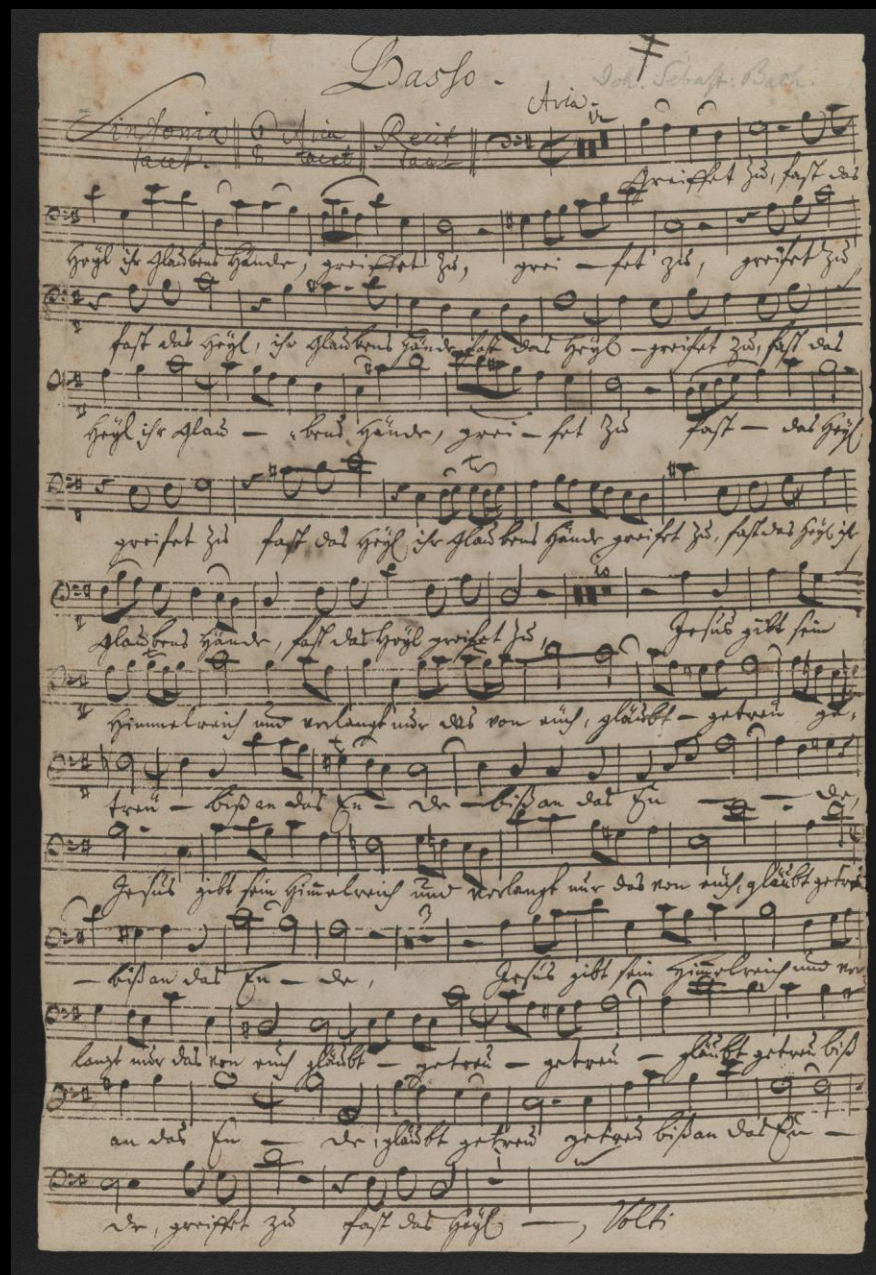 Basso.
Joh. Sebast: Bach.
Aria.
Sinfonia Aria Recit
tacet. tacet tacet
12
greiffet zu, fast das
Heyl ihr Glaubens Hände, greiffet zu, grei - fet zu, greifet zu
fast das Heyl, ihr Glaubens Hände fast das Heyl - greifet zu, fast das
Heyl ihr Glau - bens Hände, grei - fet zu fast - das Heyl
greifet zu fast das Heyl ihr Glaubens Hände greifet zu, fast das Heyl ihr
10
Glaubens Hände, fast das Heyl greifet zu, Jesus gibt sein
Himmelreich und verlangt nur das von euch, gläubt - getreu ge-
treu - biß an das En - de - biß an das En - - de,
Jesus gibt sein Him̅elreich und verlangt nur das von euch, gläubt getreu
3
- biß an das En - de, Jesus gibt sein Him̅elreich und ver
langt nur das von euch gläubt - getreu - getreu - gläubt getreu biß
an das En - de, gläubt getreu getreu biß an das En -
de, greiffet zu fast das Heyl -, Volti